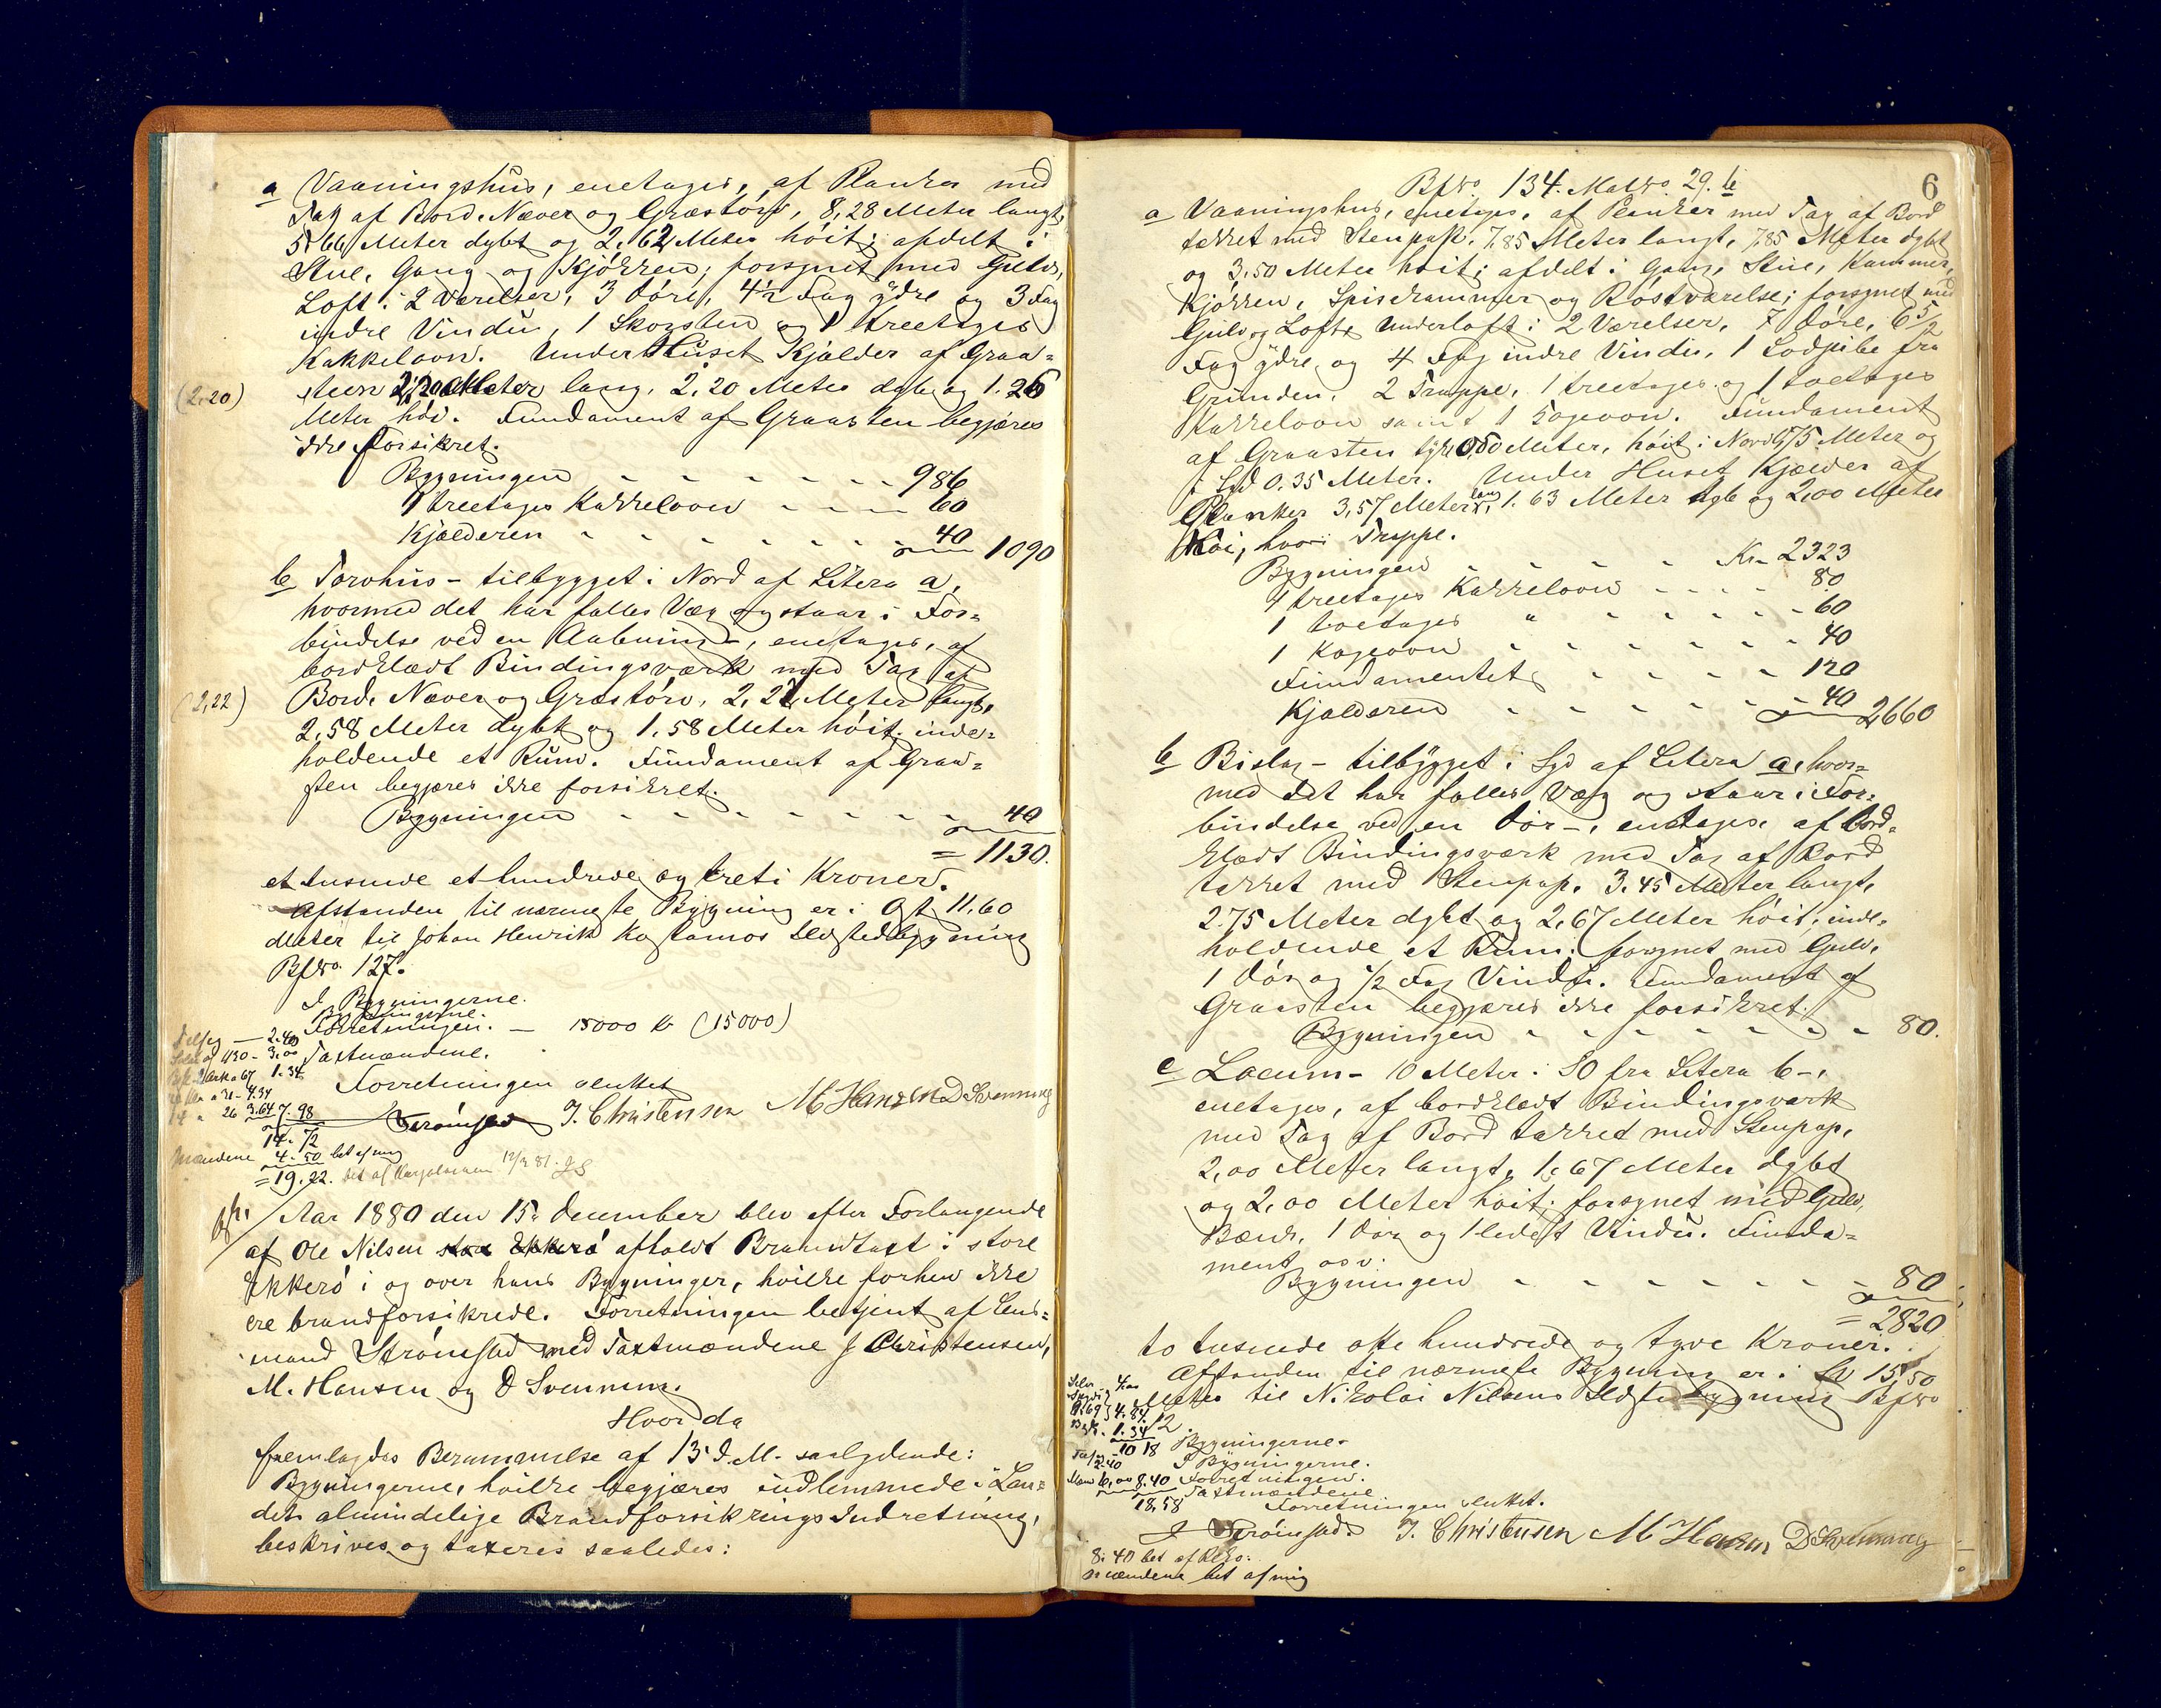 a Vaaningshus, enetages, af Planker med
Tag af Bord, Næver og Græstörv, 8,28 Meter langt,
5,66 Meter dybt og 2,62 Meter höit; afdelt i
Stue, Gang og Kjökken; forsynet med Gulv,
Loft i 2 Værelser, 3 Döre, 4½ Fag ydre og 3 Fag
indre Vindu, 1 Skorsten og 1 treetages
Kakkelovn. Under Huset Kjælder af Graa=
(2,20) steen 2,20 Meter lang, 2,20 Meter dyb og 1.26
Meter höi. Fundament af Graasten begjæres
ikke forsikret.
Bygningen - - - - - - 986
1 treetages Kakkelovn - - - 60
Kjælderen - - - - - - 40
1090
b Torvhus - tilbygget i Nord af Litera a,
hvormed det har fælles Væg og staar i For=
bindelse ved en Aabning -, enetages, af
bordklædt Bindingsværk med Tag af
(2,22) Bord, Næver og Græstörv, 2,22 Meter langt,
2,58 Meter dybt og 1,58 Meter höit; inde=
holdende et Rum. Fundament af Graa=
sten begjæres ikke forsikret.
Bygningen - - - - - - - 40
= 1130.
et tusinde et hundrede og treti Kroner.
Afstanden til nærmeste Bygning er i Öst 11,60
Meter til Johan Henrik Kostamos Ildstedbygning
Bfno. 127.
I Bygningerne.
Bygningerne.
Forretningen. — 15000 Kr (15000)
2.40
1130 - 3.00 Taxtmændene.
1.34
Forretningen sluttet
4.34
26 3.64 7.98
Strömsted J. Christensen M Hansen D Svenning
14.72
Mændene 4.50 bet af mig
= 19.22. bet af 12/2 81. JS
Aar 1880 den 15. December blev efter Forlangende
af Ole Nilsen afholdt Brandtaxt i store
Ekkerö i og over hans Bygninger, hvilke forhen ikke
ere brandforsikrede. Forretningen betjent af Lens=
mand Strömsted med Taxtmændene J Christensen,
M. Hansen og D Svenning.
Hvor da
fremlagdes Berammelse af 13 d.M. saalydende:
Bygningerne, hvilke begjæres indlemmede i Lan=
dets almindelige Brandforsikrings Indretning,
beskrives og taxeres saaledes:
6
Bfno. 134. Matno. 29. b
a Vaaningshus, enetages, af Planker med Tag af Bord
tækket med Stenpap, 7,85 Meter langt, 7,85 Meter dybt
og 3,50 Meter höit; afdelt i Gang, Stue, Kammer,
Kjökken, Spiskammer og Röstværelse; forsynet med
Gulv og Loft, Underloft i 2 Værelser, 7 Döre, 6 5/2
Fag ydre og 4 Fag indre Vindu, 1 Lodpibe fra
Grunden, 2 Trappe, 1 treetages og 1 toetages
Kakkelovn samt 1 Kogeovn. Fundament
af Graasten tyk 0,50 Meter, höit i Nord 0,75 Meter og
i Syd 0.35 Meter. Under Huset Kjælder af
Planker 3,57 Meter lang, 1.63 Meter dyb og 2,00 Meter
höi, hvori Trappe.
Bygningen - - - - Kr. 2323
1 treetages Kakkelovn - - - - 80
1 toetages " - - - - - - 60
1 Kogeovn - - - - - - - 40
Fundamentet - - - - - 120
Kjælderen - - - - - - - 40
2660
b Bislag - tilbygget i Syd af Litera a, hvor=
med det har fælles Væg og staar i For=
bindelse ved en Dör -, enetages, af bord=
klædt Bindingsværk med Tag af Bord
tækket med Stenpap, 3,45 Meter langt,
2.75 Meter dybt og 2,67 Meter höit; inde=
holdende et Rum; forsynet med Gulv,
1 Dör og ½ Fag Vindu. Fundament af
Graasten begjæres ikke forsikret.
Bygningen - - - - - - - 80.
c Locum - 10 Meter i SO fra Litera b -,
enetages, af bordklædt Bindingsværk
med Tag af Bord tækket med Stenpap,
2,00 Meter langt, 1,67 Meter dybt
og 2,00 Meter höit; forsynet med Gulv,
Bænk, 1 Dör og 1 ledest Vindu. Funda=
ment osv.
Bygningen - - - - - - - 80
= 2820
to tusinde otte hundrede og tyve Kroner.
Afstanden til nærmeste Bygning er i 15,50
Meter til Nikolai Nilsens Ildstedbygning Bfno
12.
4.84
1.34
10 18 Bygningerne.
2.40 I Bygningerne.
6,00 8.40 Forretningen.
Taxtmændene
18,58 Forretningen sluttet.
Strömsted. J. Christensen M Hansen D Svenning
8.40 bet af
Mændene bet af mig